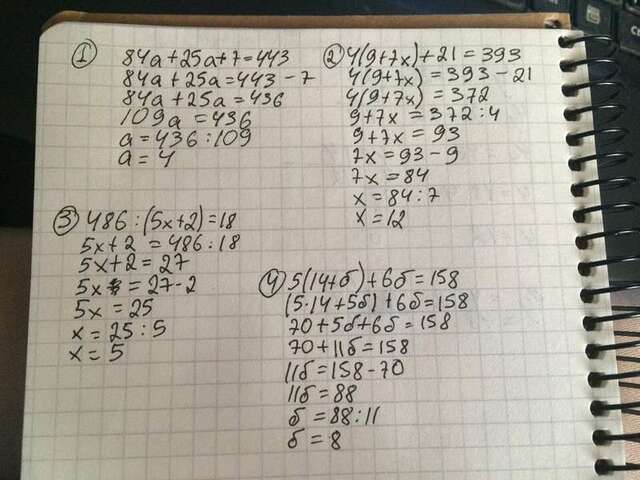 ① 84a+25a+7=443
84a+25a=443-7
84a+25a=436
109a=436
a=436:109
a=4
② 4(9+7x)+21=393
4(9+7x)=393-21
4(9+7x)=372
9+7x=372:4
9+7x=93
7x=93-9
7x=84
x=84:7
x=12
③ 486:(5x+2)=18
5x+2=486:18
5x+2=27
5x=27-2
5x=25
x=25:5
x=5
④ 5(14+б)+6б=158
(5·14+5б)+6б=158
70+5б+6б=158
70+11б=158
11б=158-70
11б=88
б=88:11
б=8